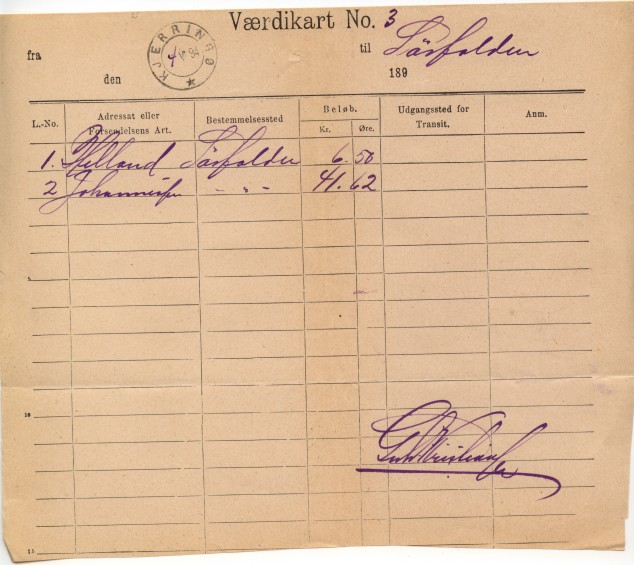 Værdikart No. 3
fra KJERRINGØ til Sørfolden
den 189
L.-No. Adressat eller Forsendelsens Art. Bestemmelsessted Beløb. Kr. Øre. Udgangssted for Transit. Anm.
1. Helland Sørfolden 6. 50
2 Johannessen - „ - 41. 62
5
10
15